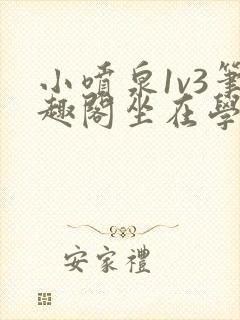 小噴泉1v3筆
趣閣坐在學
安家禮